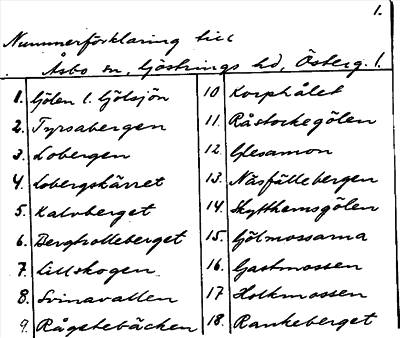 1.
Nummerförklaring till
Åsbo sn, Göstrings hd, Österg. l.
1. Gölen l. Gölsjön
2. Tyrsabergen
3. Lobergen
4. Lobergskärret
5. Kalvberget
6. Bergtrolleberget
7. Lillskogen
8. Svinavallen
9. Rågetebäcken
10 Korphålet
11. Råstockegölen
12. Glesamon
13. Näsfällebergen
14. Skytthemsgölen
15. Gölmossarna
16. Gastmossen
17 Holkmossen
18. Rankeberget